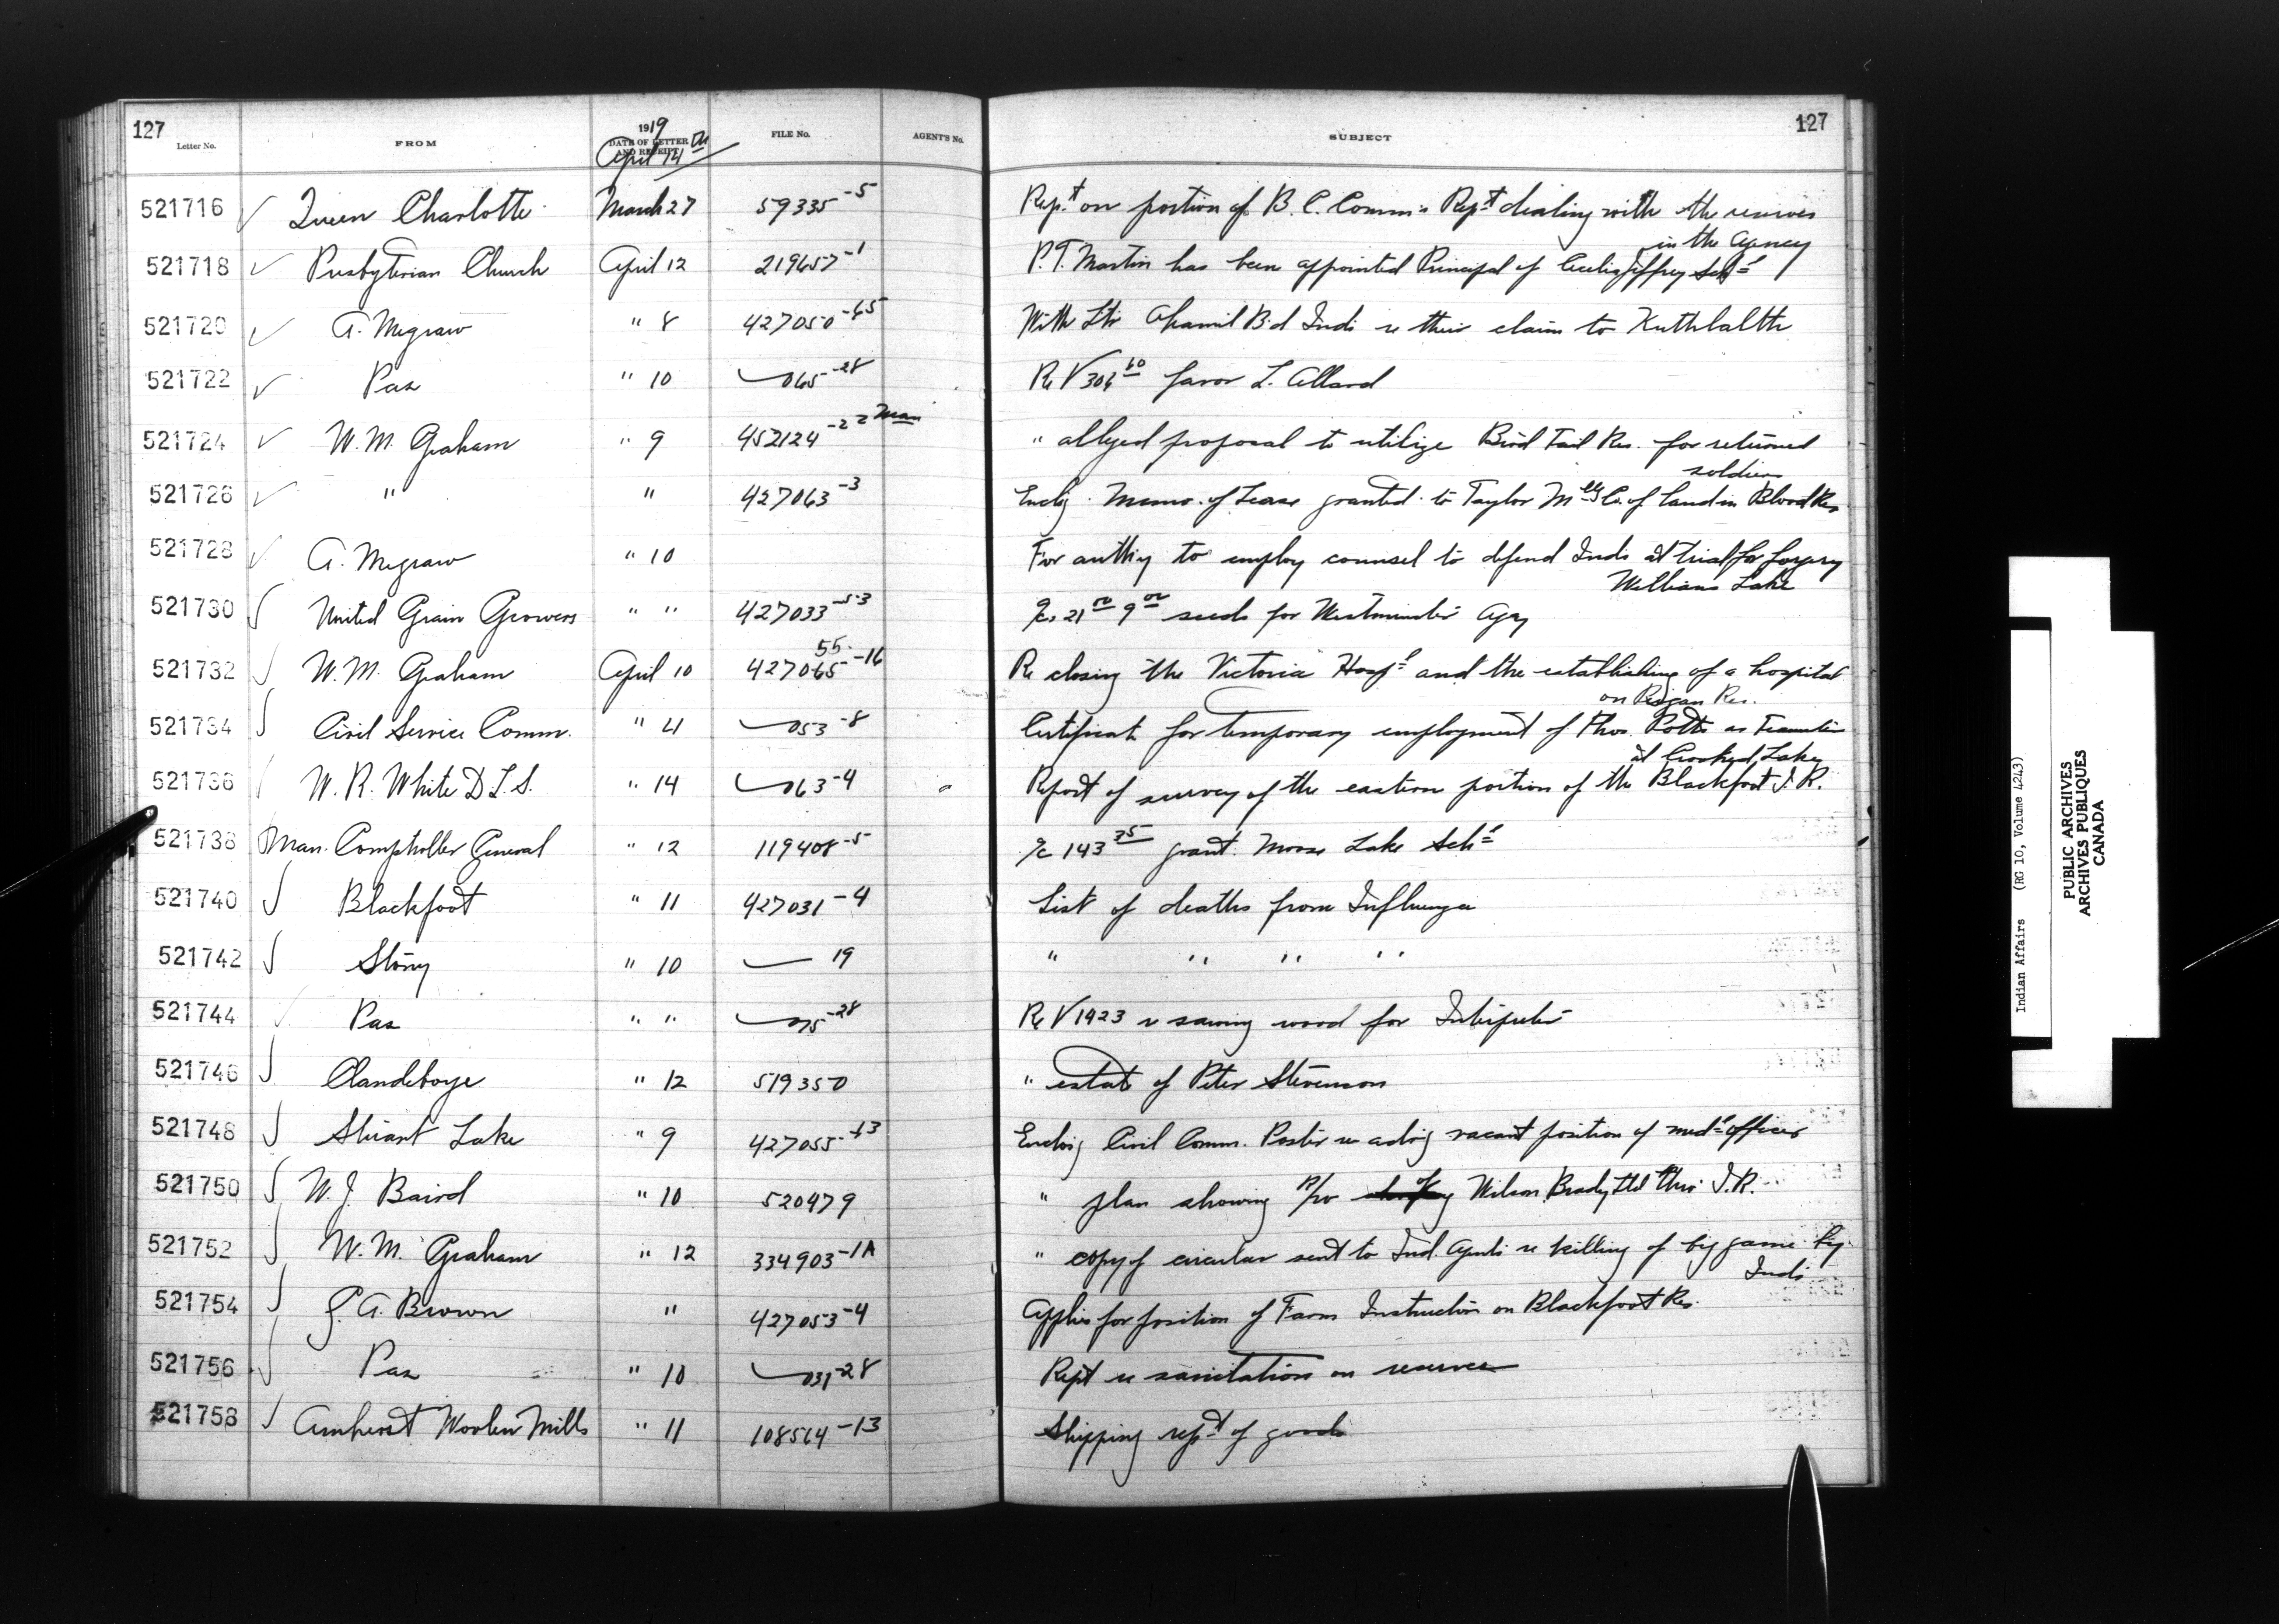 127
Letter No.
FROM
1919
DATE OF LETTER AND RECEIPT
April 14th
FILE No.
AGENT'S No.
SUBJECT
127
521716 Queen Charlotte March 27 59335-5 Rep.t on portion of B.C. Comm's Rept dealing with the reserves
in the Agency
521718 Presbyterian Church April 12 219657-1 P.T. Martin has been appointed Principal of Cecilia Jeffrey Schl
521720 A. Megraw " 8 427050-45 With Ltr Bd Indi re their claim to
521722 Pas " 10 065-28 Re V 306 60 favor L. Allard
521724 W.M. Graham " 9 452124-22 Man " alleged proposal to utilize Bird Tail Res. for returned
soldiers
521726 " " 427063-3 Enclg Memo. of Lease granted to Taylor Mllg Co. of land in Blood Res
521728 A. Megraw " 10 For authy to employ counsel to defend Inds at trial for forgery
Williams Lake
521730 United Grain Growers " " 427033-53 a/cs 21 9 seeds for Westminster Agy
521732 W.M. Graham April 10 427065-16 Re closing the Victoria Hospl and the establishing of a hospital
55
on Peigan Res.
521734 Civil Service Comm. " 4 053-8 Certificate for temporary employment of Thos. Potts as Teamster
at Crooked Lake
521736 W.R. White D.L.S. " 14 063-4 Report of survey of the eastern portion of the Blackfoot I.R.
521738 Man. Comptroller General " 12 119408-5 a/c 143 35 grant Moose Lake Schl
521740 Blackfoot " 11 427031-4 List of deaths from Influenza
521742 Stony " 10 19 " " " "
521744 Pas " " 75-28 Re V 1923 re sawing wood for Interpreter
521746 Clandeboye " 12 519350 " estate of Peter Stevenson
521748 Stuart Lake " 9 427055-43 Enclosg Civil Comm. Poster re advg vacant position of medl officer
521750 W.J. Baird " 10 520479 " plan showing R/W of Wilson Brady Ltd thro' I.R.
521752 W.M. Graham " 12 334903-1A " copy of circular sent to Ind. Agents re killing of big game by
Inds
521754 G.A. Brown " 427053-4 Applies for position of Farm Instructor on Blackfoot Res.
521756 Pas " 10 031-28 Rept re sanitation on reserves
521758 Amherst Woolen Mills " 11 108564-13 Shipping rept of goods
Indian Affairs (RG 10, Volume 4243)
PUBLIC ARCHIVES
ARCHIVES PUBLIQUES
CANADA